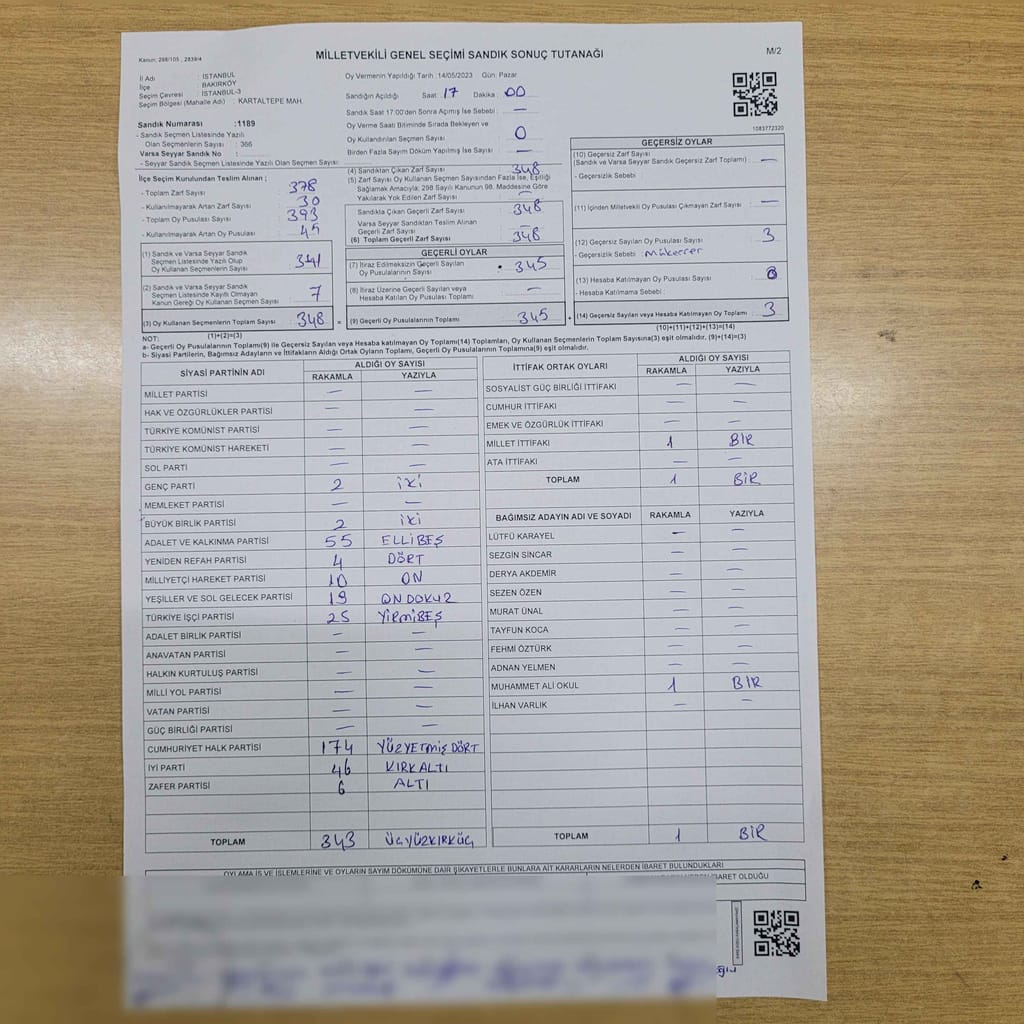 Kanun; 298/105 , 2839/4
MİLLETVEKİLİ GENEL SEÇİMİ SANDIK SONUÇ TUTANAĞI
M/2
İl Adı : İSTANBUL
İlçe : BAKIRKÖY
Seçim Çevresi : İSTANBUL-3
Seçim Bölgesi (Mahalle Adı) : KARTALTEPE MAH.
Sandık Numarası :1189
- Sandık Seçmen Listesinde Yazılı
Olan Seçmenlerin Sayısı : 366
Varsa Seyyar Sandık No :
- Seyyar Sandık Seçmen Listesinde Yazılı Olan Seçmen Sayısı:
Oy Vermenin Yapıldığı Tarih :14/05/2023 Gün: Pazar
Sandığın Açıldığı Saat : 17 Dakika : 00
Sandık Saat 17:00'den Sonra Açılmış İse Sebebi : —
Oy Verme Saati Bitiminde Sırada Bekleyen ve
Oy Kullandırılan Seçmen Sayısı : 0
Birden Fazla Sayım Döküm Yapılmış İse Sayısı : —
1083772320
İlçe Seçim Kurulundan Teslim Alınan ;
- Toplam Zarf Sayısı 378
- Kullanılmayarak Artan Zarf Sayısı 30
- Toplam Oy Pusulası Sayısı 393
- Kullanılmayarak Artan Oy Pusulası 45
(1) Sandık ve Varsa Seyyar Sandık
Seçmen Listesinde Yazılı Olup
Oy Kullanan Seçmenlerin Sayısı 341
(2) Sandık ve Varsa Seyyar Sandık
Seçmen Listesinde Kayıtlı Olmayan
Kanun Gereği Oy Kullanan Seçmen Sayısı 7
(3) Oy Kullanan Seçmenlerin Toplam Sayısı 348 =
(1)+(2)=(3)
(4) Sandıktan Çıkan Zarf Sayısı 348
(5) Zarf Sayısı Oy Kullanan Seçmen Sayısından Fazla İse, Eşitliği
Sağlamak Amacıyla; 298 Sayılı Kanunun 98. Maddesine Göre
Yakılarak Yok Edilen Zarf Sayısı —
Sandıkta Çıkan Geçerli Zarf Sayısı 348
Varsa Seyyar Sandıktan Teslim Alınan
Geçerli Zarf Sayısı —
(6) Toplam Geçerli Zarf Sayısı 348
GEÇERLİ OYLAR
(7) İtiraz Edilmeksizin Geçerli Sayılan
Oy Pusulalarının Sayısı 345
(8) İtiraz Üzerine Geçerli Sayılan veya
Hesaba Katılan Oy Pusulası Toplamı —
(9) Geçerli Oy Pusulalarının Toplamı 345 +
GEÇERSİZ OYLAR
(10) Geçersiz Zarf Sayısı
(Sandık ve Varsa Seyyar Sandık Geçersiz Zarf Toplamı) : —
- Geçersizlik Sebebi :
(11) İçinden Milletvekili Oy Pusulası Çıkmayan Zarf Sayısı —
(12) Geçersiz Sayılan Oy Pusulası Sayısı 3
- Geçersizlik Sebebi : Mükerrer
(13) Hesaba Katılmayan Oy Pusulası Sayısı
- Hesaba Katılmama Sebebi :
(14) Geçersiz Sayılan veya Hesaba Katılmayan Oy Toplamı 3
(10)+(11)+(12)+(13)=(14)
NOT:
a- Geçerli Oy Pusulalarının Toplamı(9) ile Geçersiz Sayılan veya Hesaba katılmayan Oy Toplamı(14) Toplamları, Oy Kullanan Seçmenlerin Toplam Sayısına(3) eşit olmalıdır. (9)+(14)=(3)
b- Siyasi Partilerin, Bağımsız Adayların ve İttifakların Aldığı Ortak Oyların Toplamı, Geçerli Oy Pusulalarının Toplamına(9) eşit olmalıdır.
SİYASİ PARTİNİN ADI ALDIĞI OY SAYISI
RAKAMLA YAZIYLA
MİLLET PARTİSİ — —
HAK VE ÖZGÜRLÜKLER PARTİSİ — —
TÜRKİYE KOMÜNİST PARTİSİ — —
TÜRKİYE KOMÜNİST HAREKETİ — —
SOL PARTİ — —
GENÇ PARTİ 2 İKİ
MEMLEKET PARTİSİ — —
BÜYÜK BİRLİK PARTİSİ 2 İKİ
ADALET VE KALKINMA PARTİSİ 55 ELLİBEŞ
YENİDEN REFAH PARTİSİ 4 DÖRT
MİLLİYETÇİ HAREKET PARTİSİ 10 ON
YEŞİLLER VE SOL GELECEK PARTİSİ 19 ONDOKUZ
TÜRKİYE İŞÇİ PARTİSİ 25 YİRMİBEŞ
ADALET BİRLİK PARTİSİ — —
ANAVATAN PARTİSİ — —
HALKIN KURTULUŞ PARTİSİ — —
MİLLİ YOL PARTİSİ — —
VATAN PARTİSİ — —
GÜÇ BİRLİĞİ PARTİSİ — —
CUMHURİYET HALK PARTİSİ 174 YÜZYETMİŞ DÖRT
İYİ PARTİ 46 KIRKALTI
ZAFER PARTİSİ 6 ALTI
TOPLAM 343 ÜÇYÜZKIRKÜÇ
İTTİFAK ORTAK OYLARI ALDIĞI OY SAYISI
RAKAMLA YAZIYLA
SOSYALİST GÜÇ BİRLİĞİ İTTİFAKI — —
CUMHUR İTTİFAKI — —
EMEK VE ÖZGÜRLÜK İTTİFAKI — —
MİLLET İTTİFAKI 1 BİR
ATA İTTİFAKI — —
TOPLAM 1 BİR
BAĞIMSIZ ADAYIN ADI VE SOYADI RAKAMLA YAZIYLA
LÜTFÜ KARAYEL — —
SEZGİN SİNCAR — —
DERYA AKDEMİR — —
SEZEN ÖZEN — —
MURAT ÜNAL — —
TAYFUN KOCA — —
FEHMİ ÖZTÜRK — —
ADNAN YELMEN — —
MUHAMMET ALİ OKUL 1 BİR
İLHAN VARLIK — —
TOPLAM 1 BİR
OYLAMA İŞ VE İŞLEMLERİNE VE OYLARIN SAYIM DÖKÜMÜNE DAİR ŞİKAYETLERLE BUNLARA AİT KARARLARIN NELERDEN İBARET BULUNDUKLARI
İBARET OLDUĞU